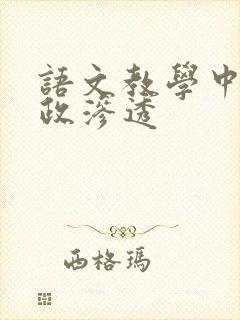 語文教學中
政滲透
西格瑪